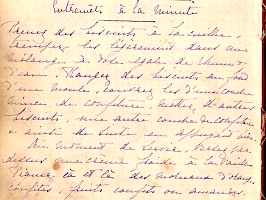 Entremêts à la minute
Prenez des biscuits à la cuiller,
trempez les légèrement dans un
mélange à dose égale de rhum &
d'eau. Rangez des biscuits au fond
d'un moule, couvrez les d'une couche
mince de confiture, mettez d'autres
biscuits, une autre couche de confiture
& ainsi de suite en appuyant bien.
Au moment de servir, versez par
dessus une crème froide à la vanille
Piquez çà et là des morceaux d'oranges
confites, fruits confits ou amandes.